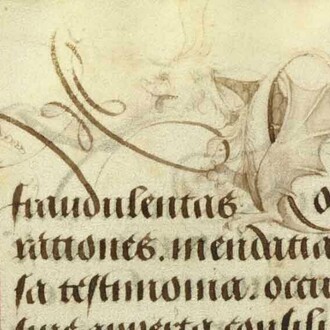 fraudulentas o
rationes. mendatia
sa testimonia. occu